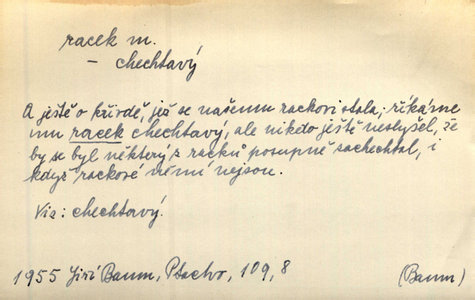 racek m.
– chechtavý
A ještě o křivdě, jež se našemu rackovi stala; říkáme
mu racek chechtavý, ale nikdo ještě neslyšel, že
by se byl některý z racků posupně zachechtal, i
když rackové němí nejsou.
Viz: chechtavý.
1955 Jiří Baum, Ptactvo, 109, 8 (Baum)